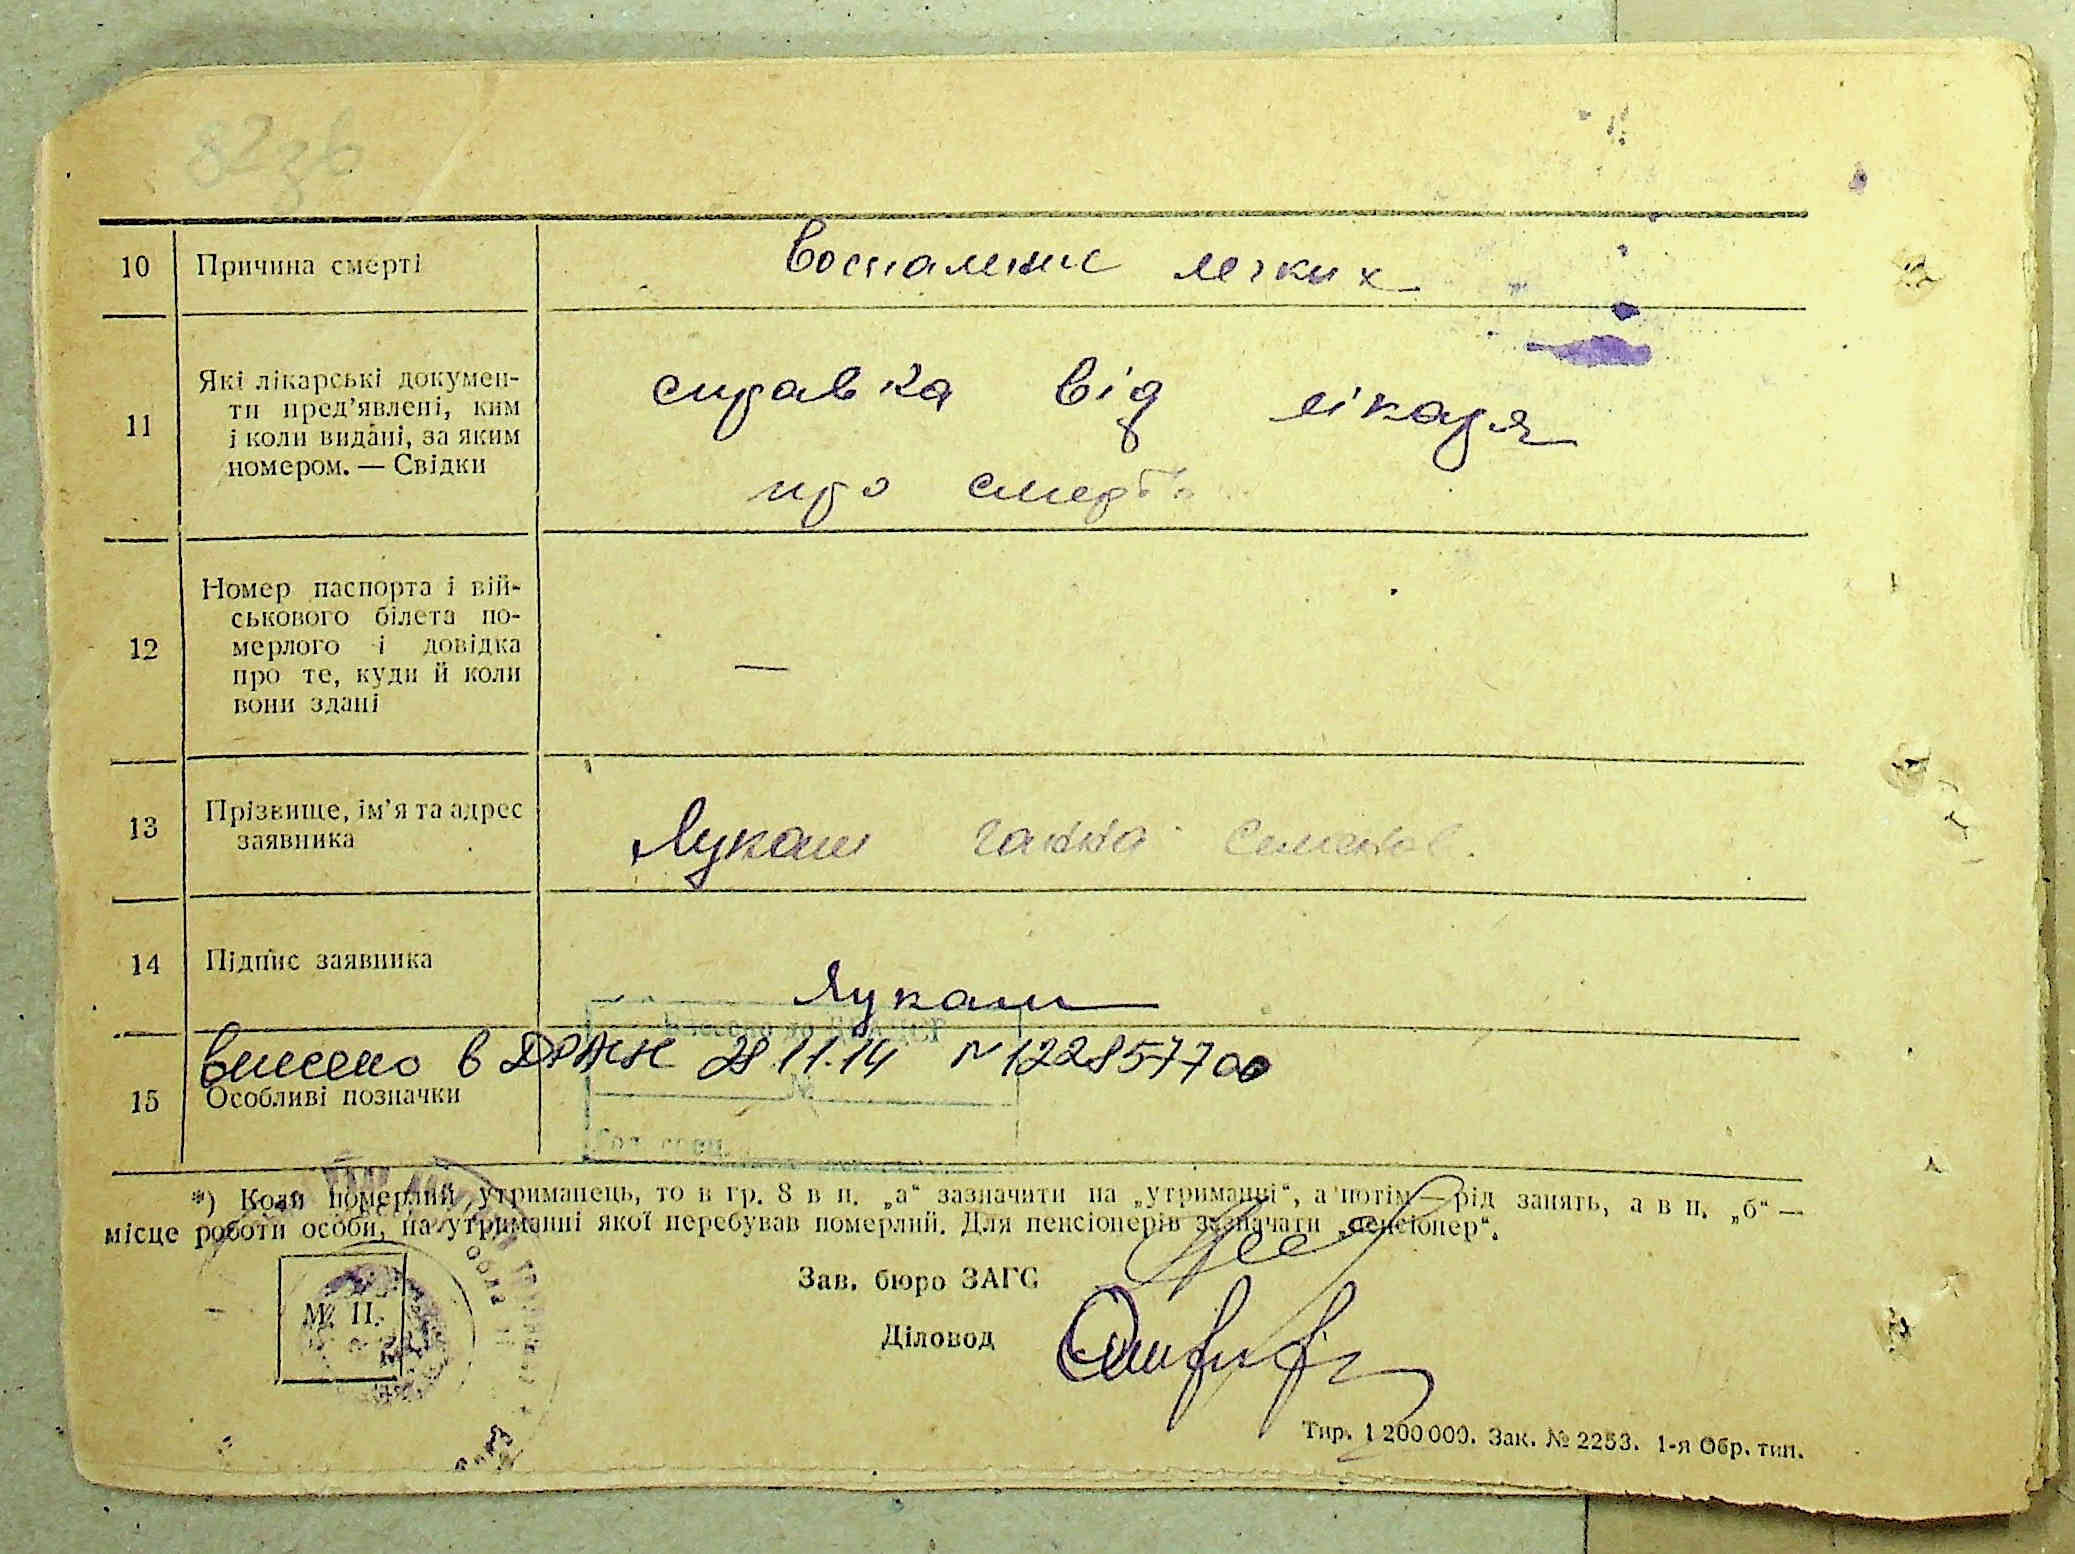 82зв
10 Причина смерті воспаление легких
11 Які лікарські докумен-
ти пред'явлені, ким
і коли видані, за яким
номером. — Свідки
справка від лікаря
про смерть
12 Номер паспорта і вій-
ськового білета по-
мерлого і довідка
про те, куди й коли
вони здані
—
13 Прізвище, ім'я та адрес
заявника
Лукаш Ганна Семенов.
14 Підпис заявника Лукаш
внесено в ДРАЦС 28.11.14 N 122857700
№
15 Особливі позначки
*) Коли померлий утриманець, то в гр. 8 в п. „а“ зазначити на „утриманні“, а потім — рід занять, а в п. „б“ —
місце роботи особи, на утриманні якої перебував померлий. Для пенсіонерів зазначати „пенсіонер“.
Зав. бюро ЗАГС
М. П.
Діловод
Тир. 1 200 000. Зак. № 2253. 1-я Обр. тип.